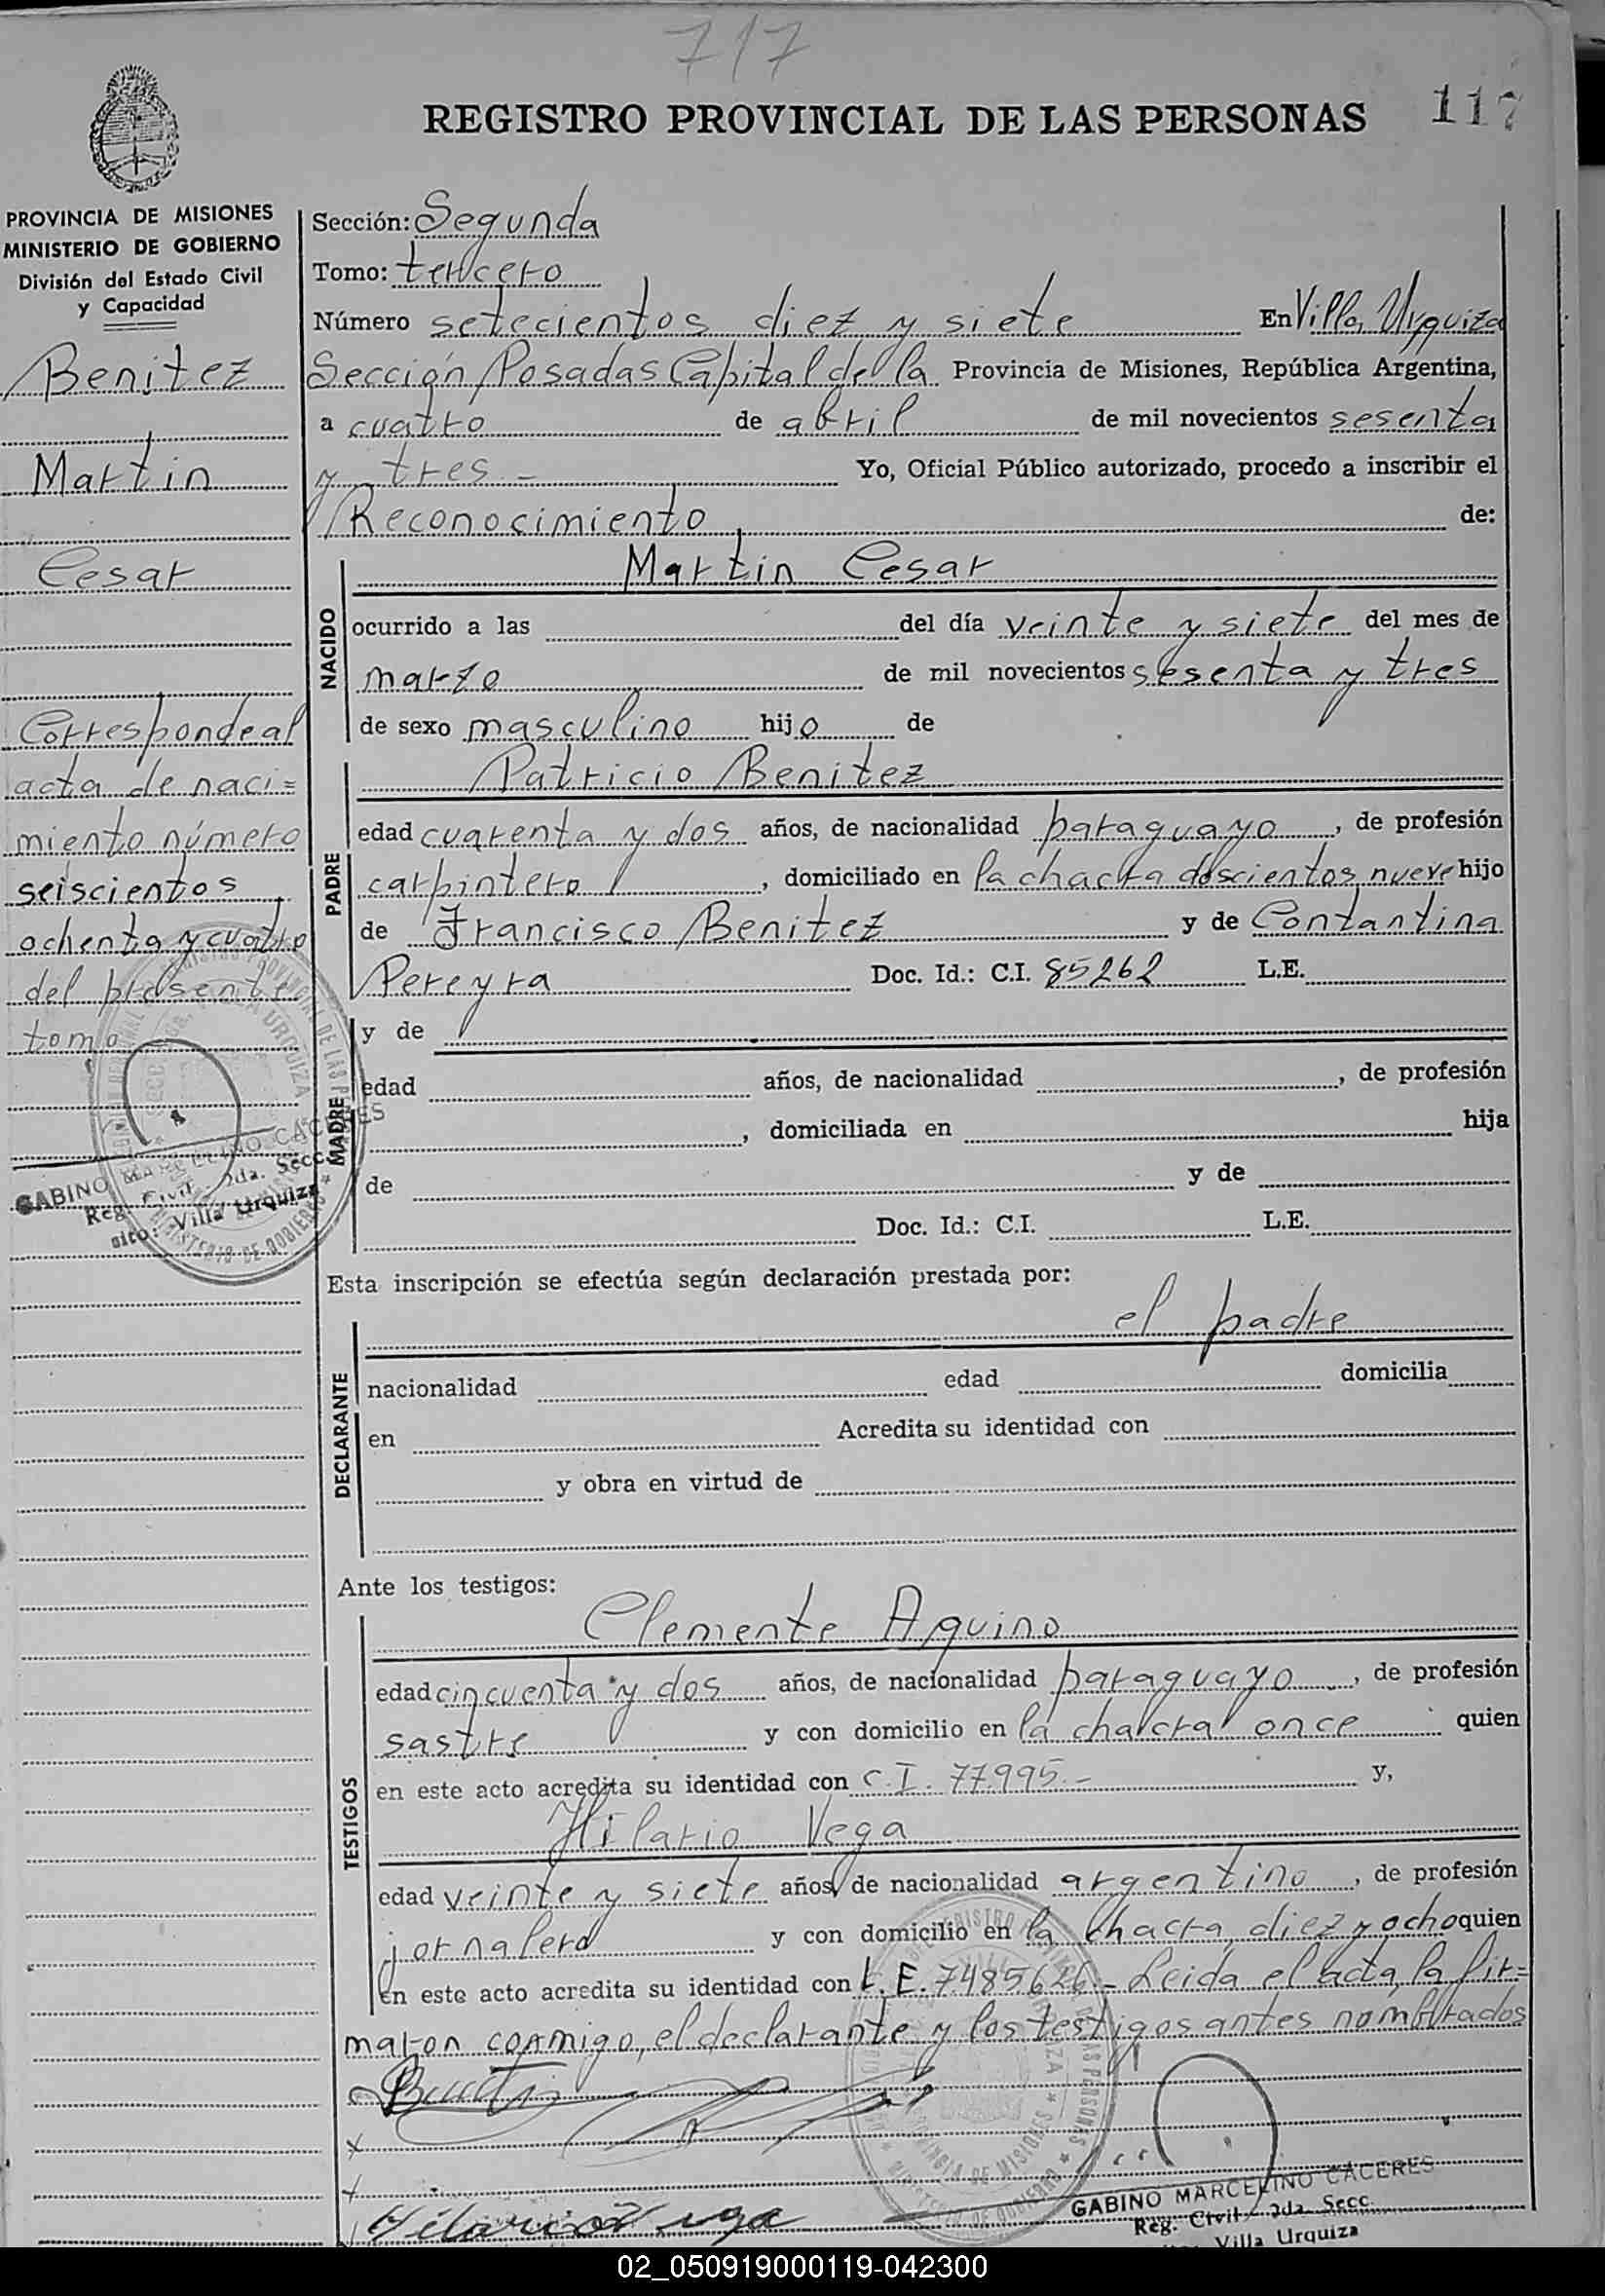 717
REGISTRO PROVINCIAL DE LAS PERSONAS 117
PROVINCIA DE MISIONES
MINISTERIO DE GOBIERNO
División del Estado Civil
y Capacidad
Benitez
Martin
Cesar
Correspondeal
acta de naci=
miento número
seiscientos
ochenta y cuatro
del presente
tomo
GABINO MARCELINO CACERES
Reg. Civil - 2da. Secc.
sito: Villa Urquiza
Sección: Segunda
Tomo: tercero
Número setecientos diez y siete En Villa Urquiza
Sección Posadas Capital de la Provincia de Misiones, República Argentina,
a cuatro de abril de mil novecientos sesenta
y tres - Yo, Oficial Público autorizado, procedo a inscribir el
Reconocimiento de:
NACIDO
Martin Cesar
ocurrido a las del día veinte y siete del mes de
marzo de mil novecientos sesenta y tres
de sexo masculino hijo de
PADRE
Patricio Benitez
edad cuarenta y dos años, de nacionalidad paraguayo, de profesión
carpintero, domiciliado en la chacra doscientos nueve hijo
de Francisco Benitez y de Contantina
Pereyra Doc. Id.: C.I. 85262 L.E.
MADRE
y de
edad años, de nacionalidad , de profesión
, domiciliada en hija
de y de
Doc. Id.: C.I. L.E.
Esta inscripción se efectúa según declaración prestada por:
el padre
DECLARANTE
nacionalidad edad domicilia
en Acredita su identidad con
y obra en virtud de
Ante los testigos:
TESTIGOS
Clemente Aquino
edad cincuenta y dos años, de nacionalidad paraguayo, de profesión
sastre y con domicilio en la chacra once quien
en este acto acredita su identidad con C.I. 77.995.- y,
Hilario Vega
edad veinte y siete años, de nacionalidad argentino, de profesión
jornalero y con domicilio en la chacra diez y ocho quien
en este acto acredita su identidad con L.E. 7485626.- Leida el acta, la fir=
maron conmigo, el declarante y los testigos antes nombrados
Hilario Vega
GABINO MARCELINO CACERES
Reg. Civil - 2da. Secc.
Villa Urquiza
02_050919000119-042300